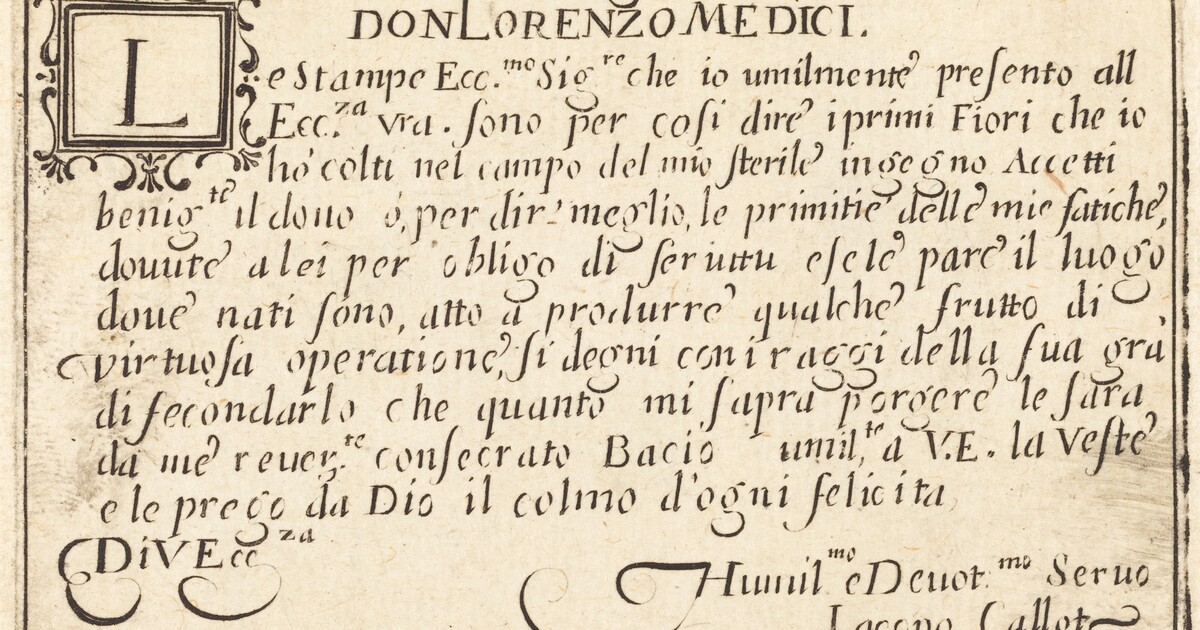 DON LORENZO MEDICI.
Le Stampe Ecc.mo Sig.re che io umilmente presento all
Ecc.za vra. sono per cosi dire i primi Fiori che io
hò colti nel campo del mio sterile ingegno Accetti
benig.te il dono ò, per dir meglio, le primitie delle mie fatiche,
douute a lei per obligo di seruitu e se le pare il luogo
doue nati sono, atto a produrre qualche frutto di
virtuosa operatione, si degni con i raggi della sua grà
di fecondarlo che quanto mi sapra porgere le sara
da me reuer.te consecrato Bacio umil.te a V.E. la Veste
e le prego da Dio il colmo d'ogni felicita
Di V Ecc za
Humil mo e Deuot.mo Seruo
Iacopo Callot